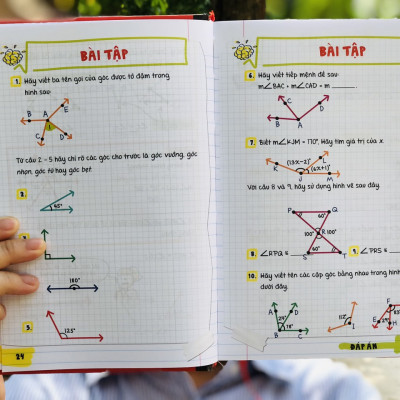 BÀI TẬP
1. Hãy viết ba tên gọi của góc được tô đậm trong
hình sau:
B A E
1
C D
Từ câu 2 – 5 hãy chỉ rõ các góc cho trước là góc vuông, góc
nhọn, góc tù hay góc bẹt.
2.
45°
180°
5.
123°
24
BÀI TẬP
6. Hãy viết tiếp mệnh đề sau:
m∠BAC + m∠CAD = m
C
D
B
A
7. Biết m∠KJM = 170°. Hãy tìm giá trị của x.
(13x-2)° L
K (6x+1)°
J M
Với câu 8 và 9, hãy sử dụng hình vẽ sau đây.
P Q
60°
100° R 100°
60°
S T
8. ∠RPQ ≅
9. ∠PRS ≅
10. Hãy viết tên các cặp góc bằng nhau trong hình
dưới đây.
A D
29°
78°
B C
112°
I
F
E H
ĐÁP ÁN